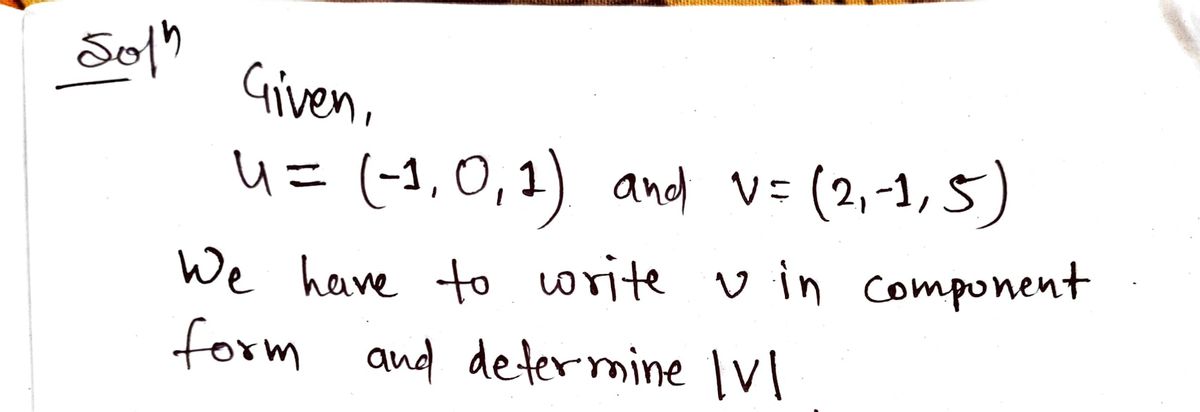 Solⁿ
Given,
u = (-1, 0, 1) and v = (2, -1, 5)
We have to write v in component
form and determine |v|